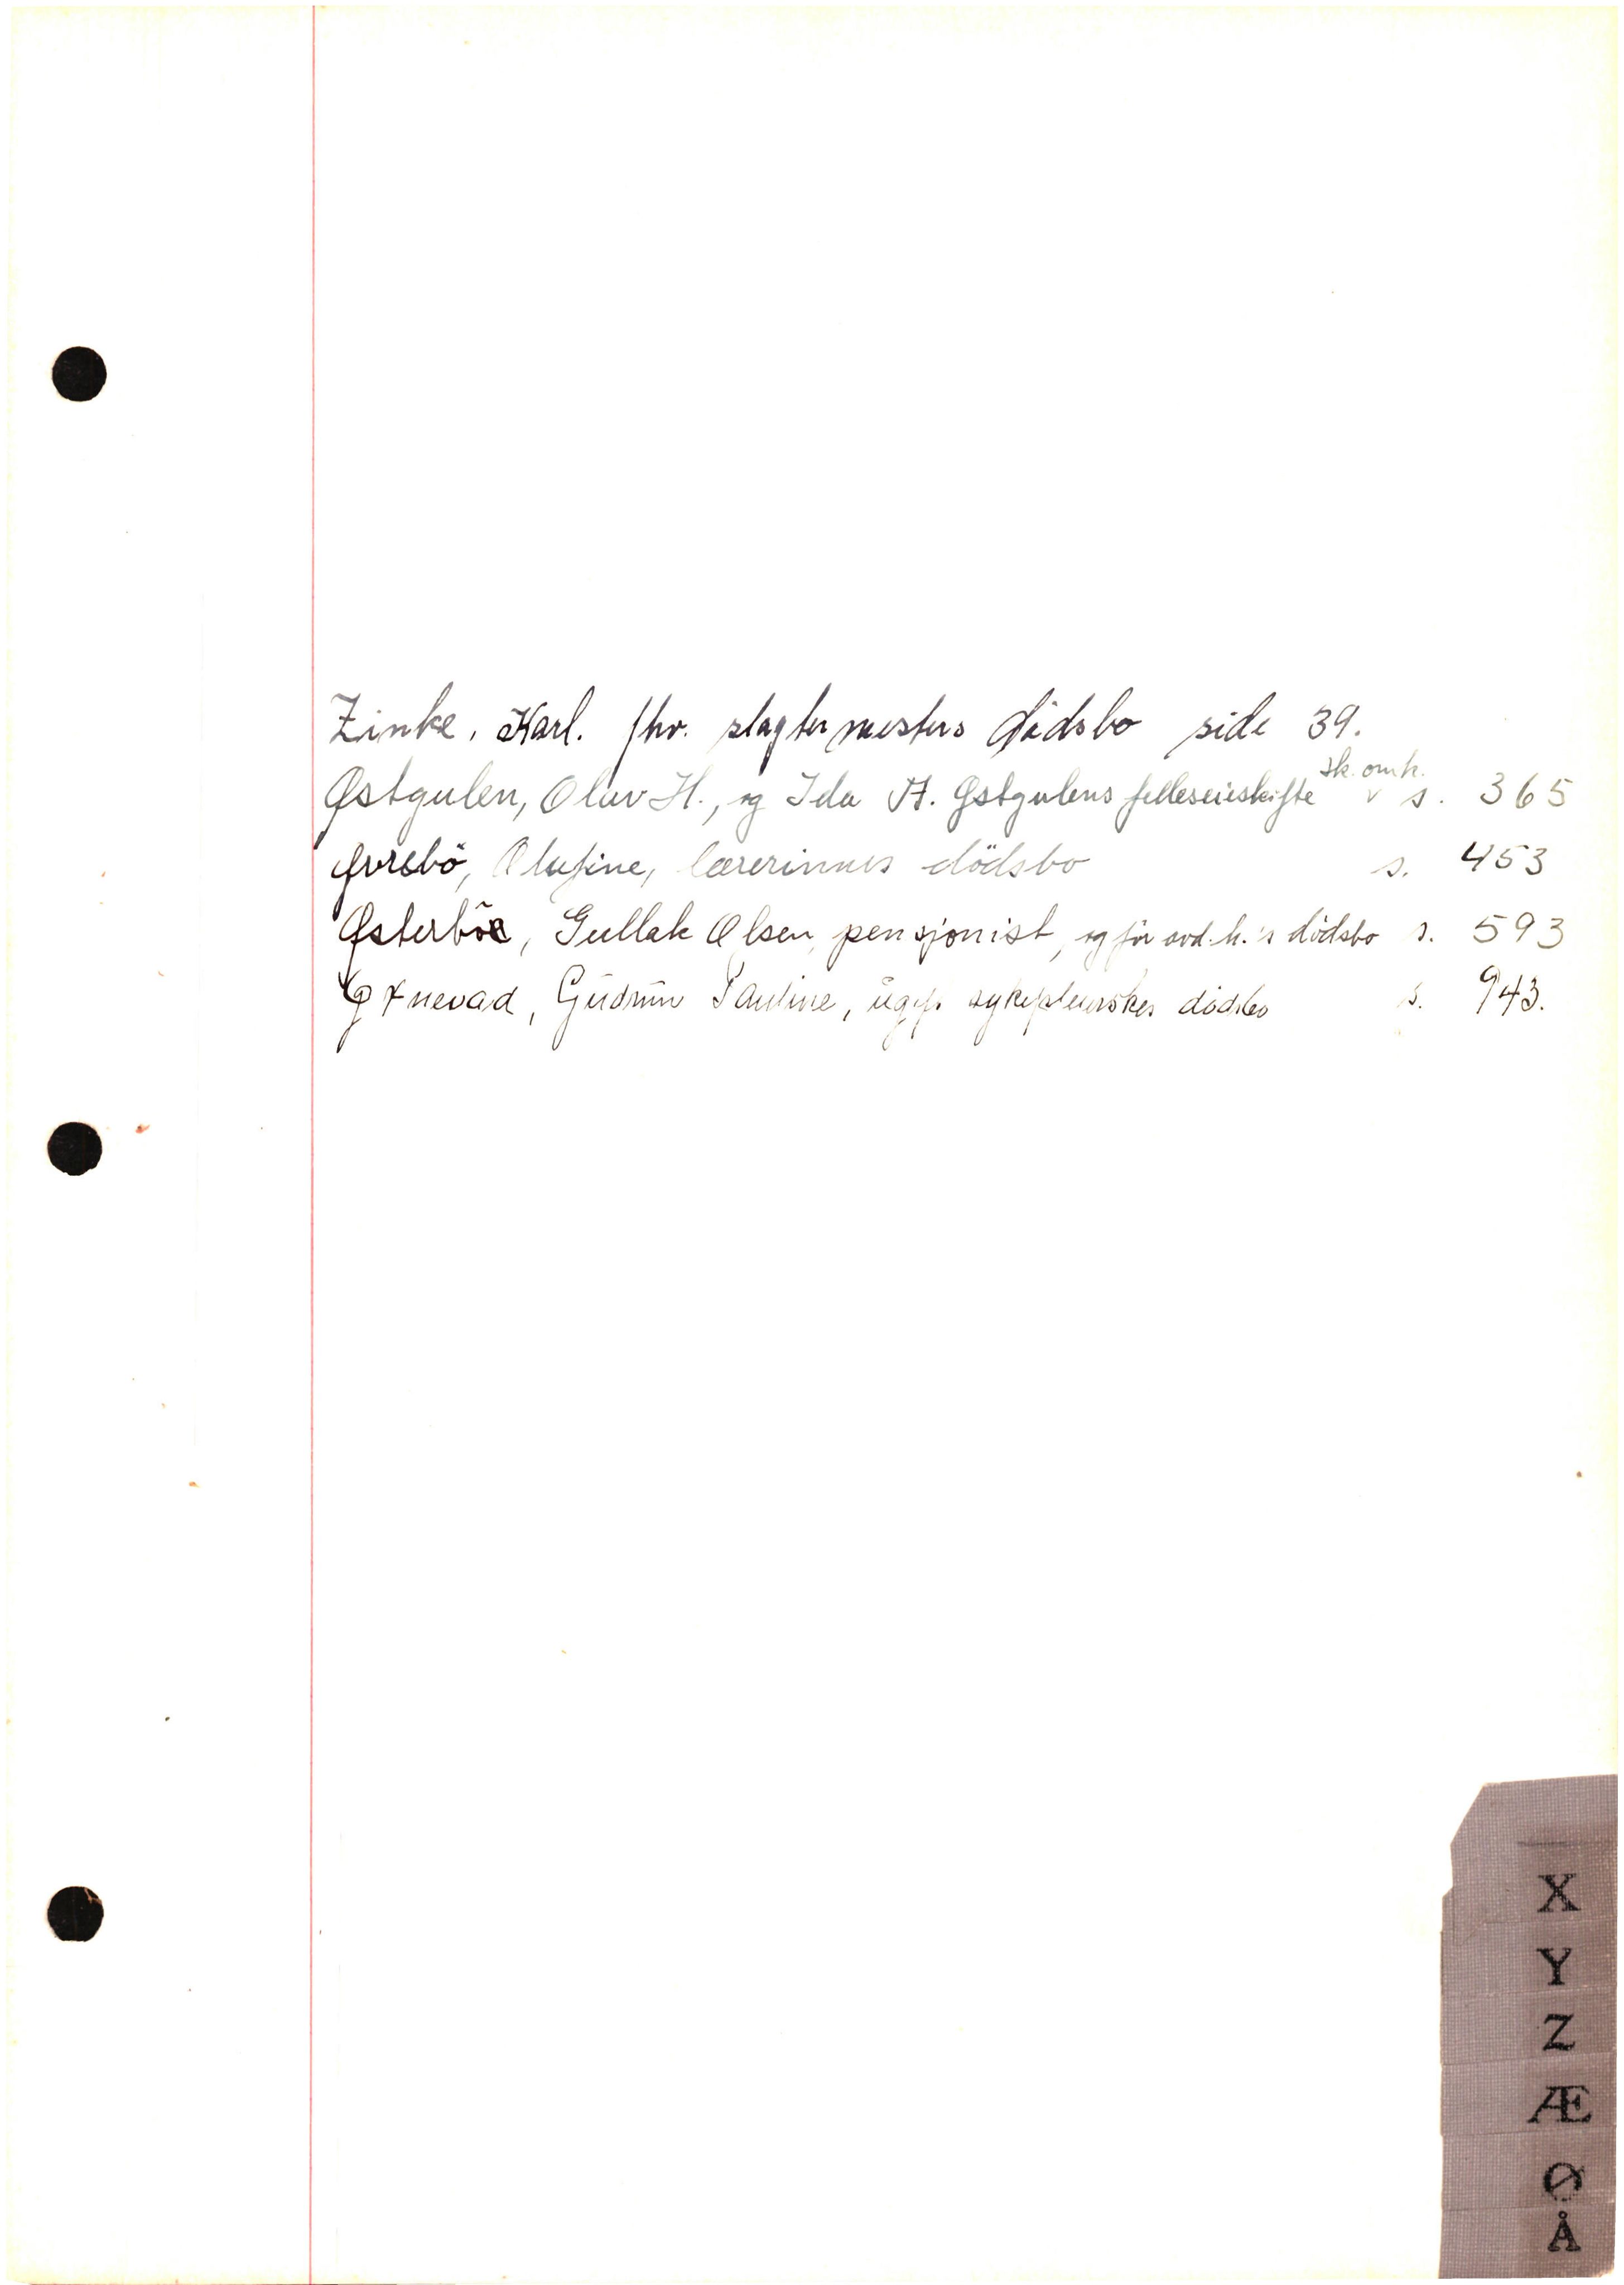 Zinke, Karl. fhv. slagtermesters dødsbo side 39.
Østgulen, Olav H., og Ida A. Østgulens felleseieskifte sk. omk. v s. 365
Øvrebö, Olufine, lærerinnes dödsbo s. 453
Østerböe, Gullak Olsen, pensjonist, og för avd. h.'s dödsbo s. 593
Øxnevad, Gudrun Pauline, ugif. sykepleierskes dødsbo s. 943.
X
Y
Z
Æ
Ø
Å